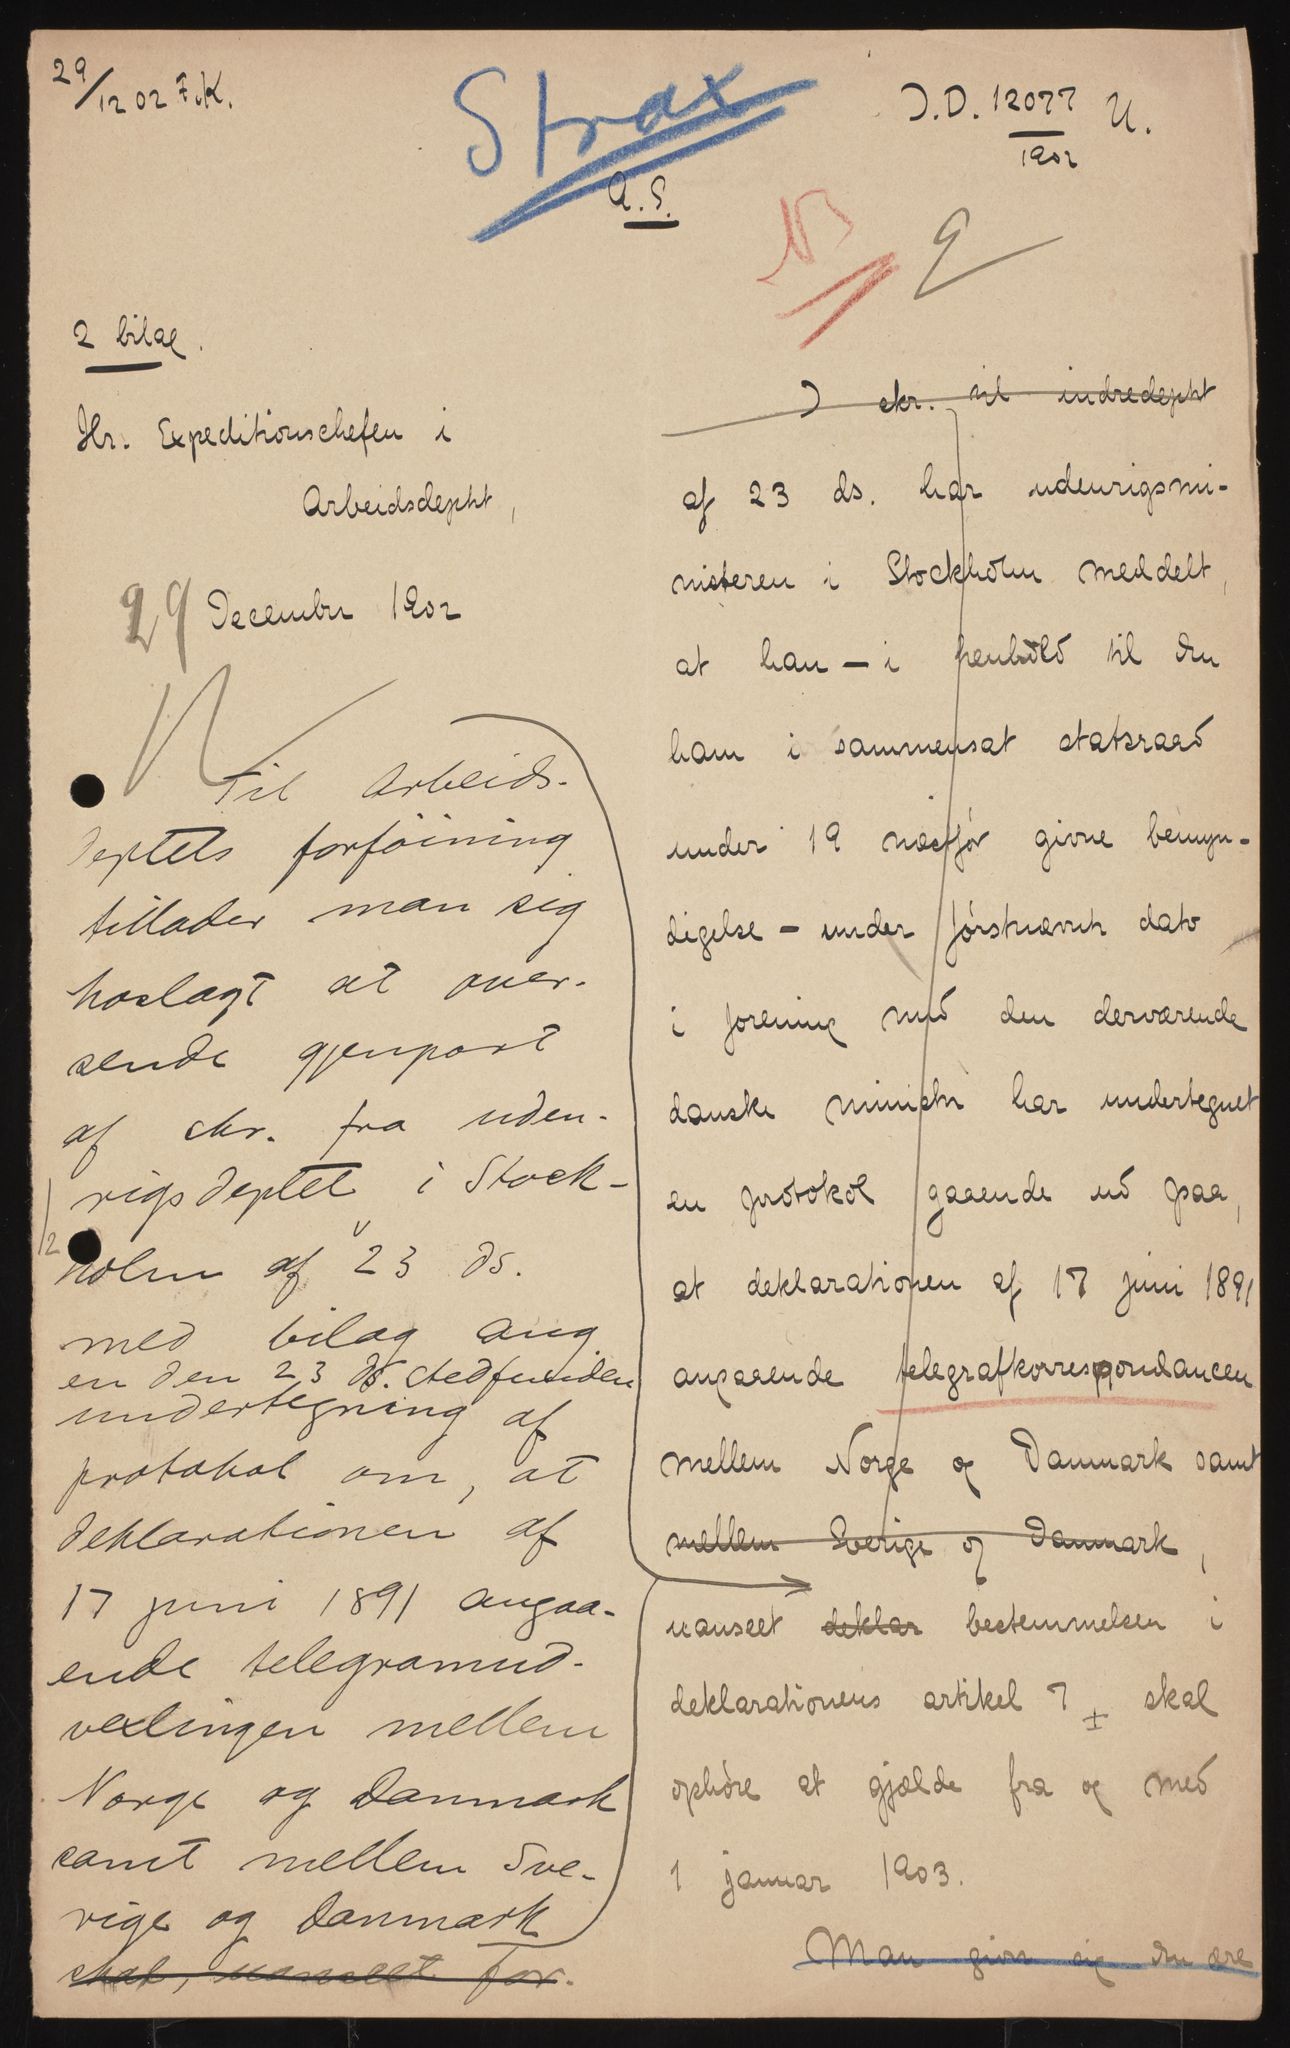 29/12 02 F.K.
Strax
J.D. 12077 U.
1902
A.S.
2 bilag.
Hr. Expeditionschefen i
Arbeidsdeptet,
29 December 1902
Til Arbeids-
deptets forföining
tillader man sig
hoslagt at over-
sende gjenpart
af skr. fra uden-
rigsdeptet i Stock-
holm af 23 ds.
med bilag ang
en den 23 ds. stedfunden
undertegning af
protokol om, at
deklarationen af
17 juni 1891 angaa-
ende telegramud-
vexlingen mellem
Norge og Danmark
samt mellem Sve-
rige og Danmark
skal, uanseet for-
I skr. til indredeptet
af 23 ds. har udenrigsmi-
nisteren i Stockholm meddelt,
at han – i henhold til den
ham i sammensat statsraad
under 19 næstfør givne bemyn-
digelse – under førstnævnte dato
i forening med den derværende
danske minister har undertegnet
en protokol gaaende ud paa,
at deklarationen af 17 juni 1891
angaaende telegrafkorrespondancen
mellem Norge og Danmark samt
mellem Sverige og Danmark,
uanseet deklar bestemmelsen i
deklarationens artikel 7, skal
ophöre at gjælde fra og med
1 januar 1903.
Man giver sig den ære